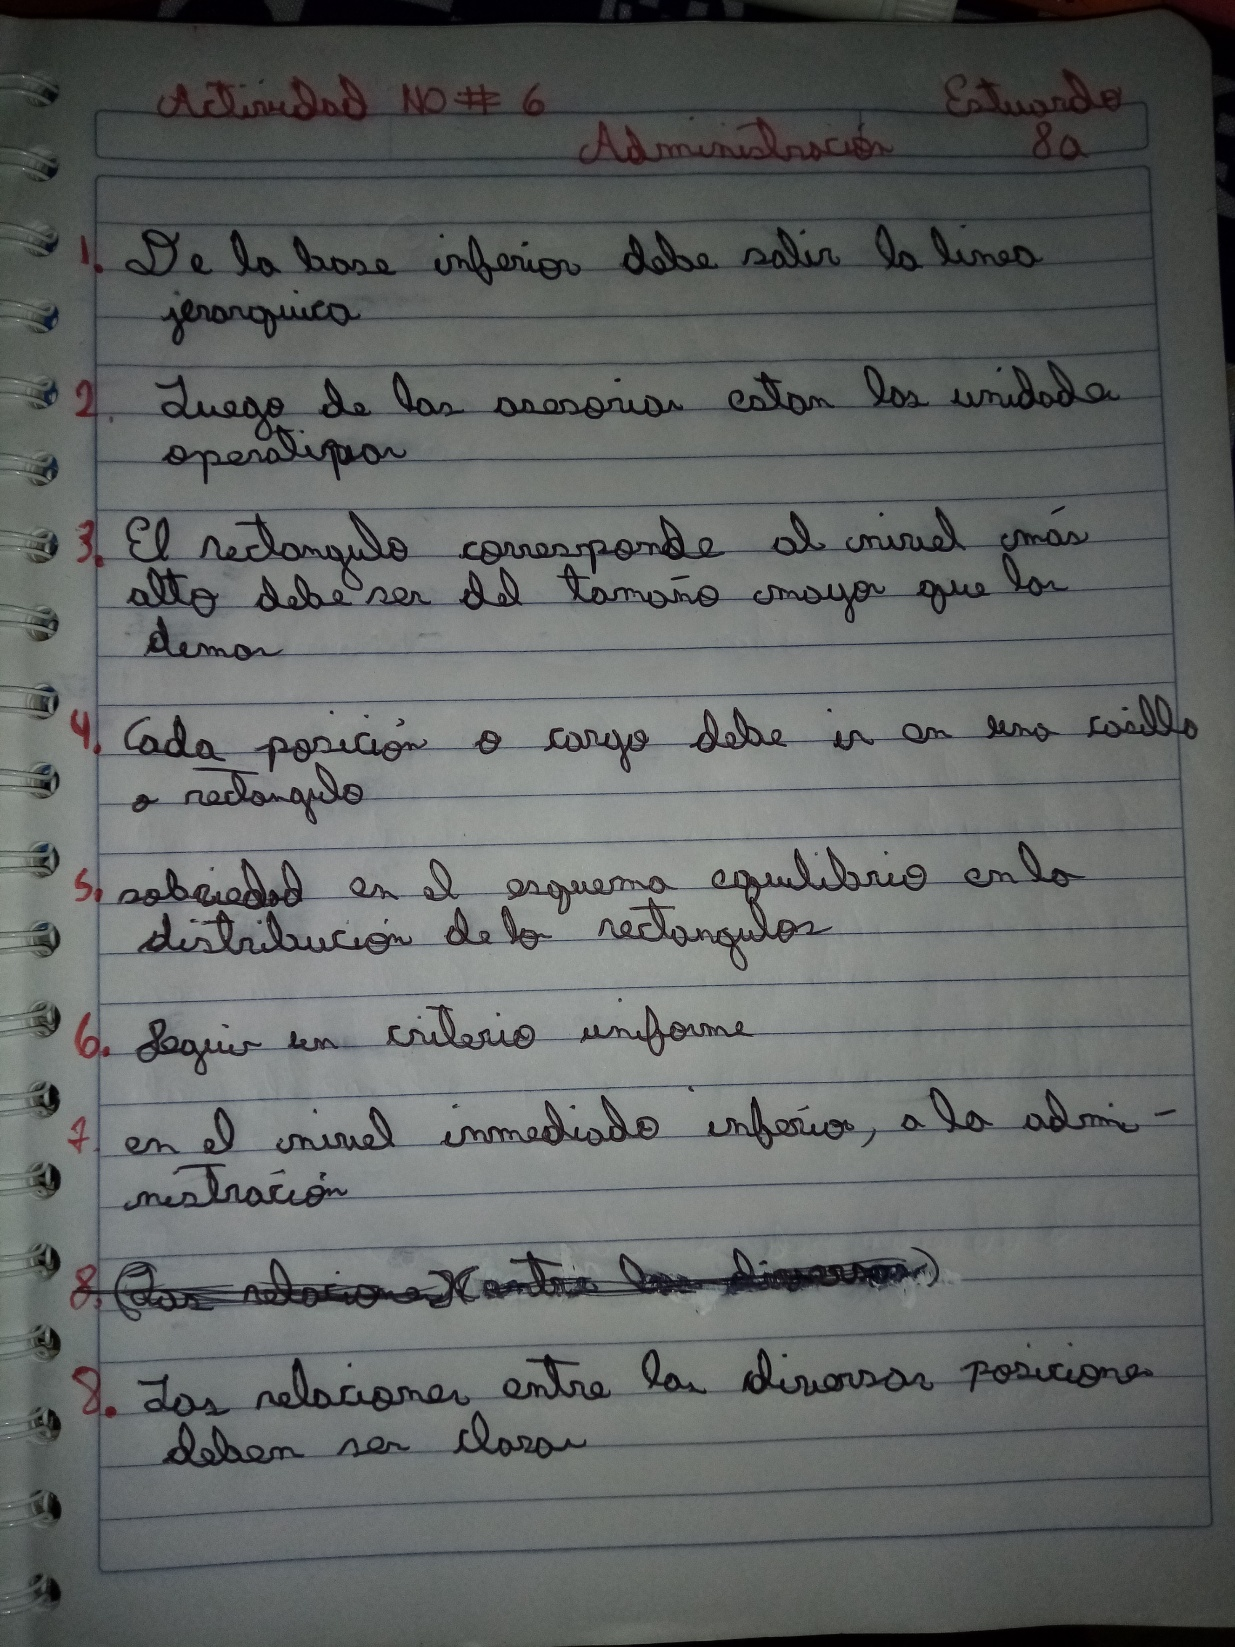 Actividad NO # 6 Estuardo
Administración 8a
1. De la base inferior debe salir la linea
jerarquica
2. Luego de las asesorias estan las unidades
operativas
3. El rectangulo corresponde al nivel más
alto debe ser del tamaño mayor que los
demas
4. Cada posición o cargo debe ir en una casilla
o rectangulo
5. sobriedad en el esquema equilibrio en la
distribución de lo rectangulos
6. Seguir un criterio uniforme
7 en el nivel inmediado inferior, a la admi-
nistración
8. (Las relaciones)(entre las diversas)
8. Las relaciones entre las diversas posiciones
deben ser claras